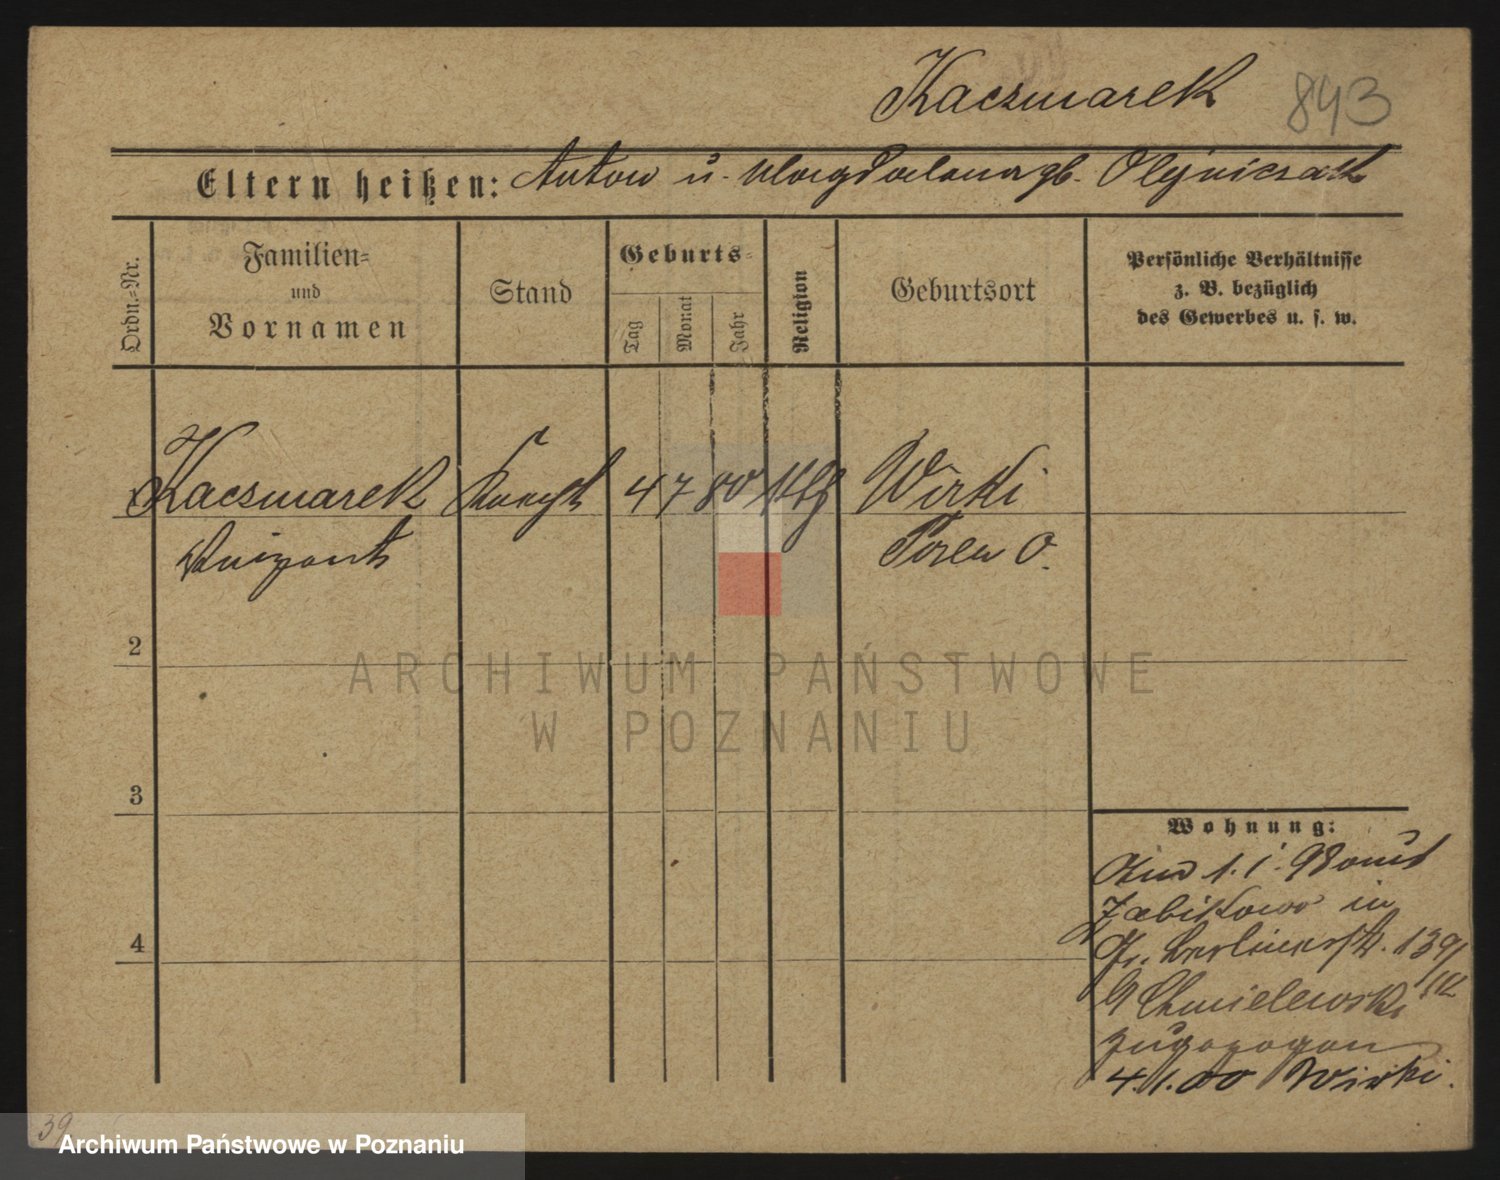 Kaczmarek 843
Eltern heißen: Anton u. Magdalena gb. Olejniczak
Ordn.-Nr.
Familien-
und
Vornamen
Stand
Geburts-
Tag
Monat
Jahr
Religion
Geburtsort
Persönliche Verhältnisse
z. B. bezüglich
des Gewerbes u. s. w.
Kaczmarek Knecht 4 7 80 kth Wirki
Vinzent Posen O.
2
3
4
Wohnung:
Am 1. 1. 98 aus
Zabikowo in
Gr. Berlinerstr. 139/
b Chmielewski
zugezogen
4.1.00 Wirki.
39
ARCHIWUM PAŃSTWOWE
W POZNANIU
Archiwum Państwowe w Poznaniu